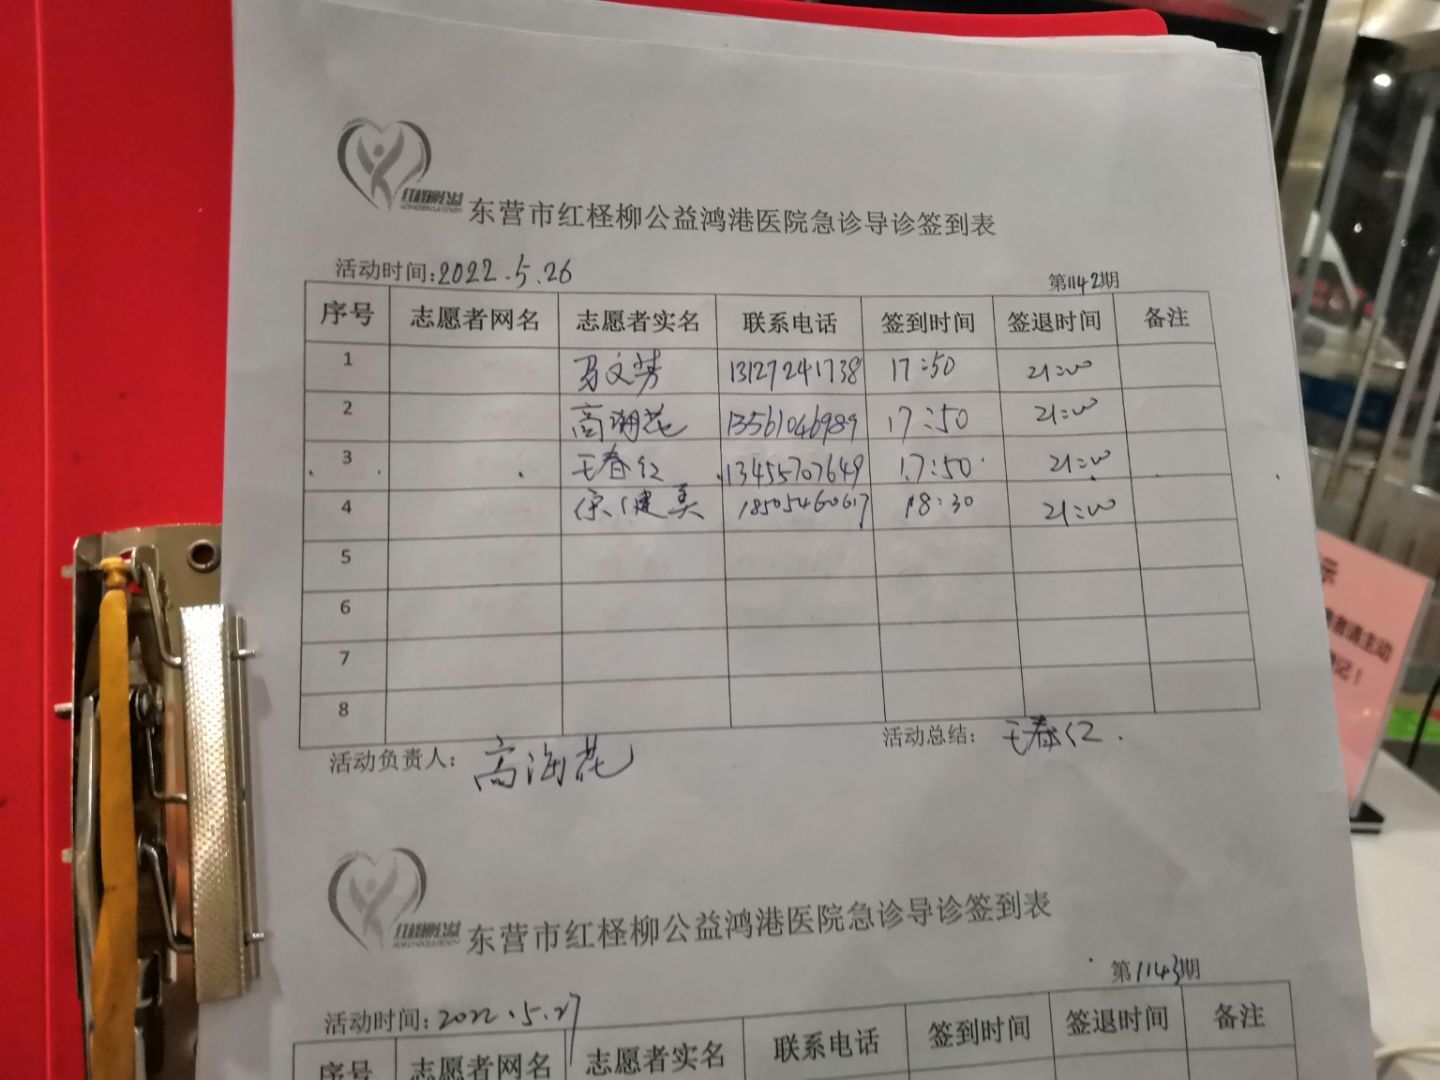 红柽柳公益
东营市红柽柳公益鸿港医院急诊导诊签到表
活动时间:2022.5.26
第1142期
序号 志愿者网名 志愿者实名 联系电话 签到时间 签退时间 备注
1 马文芳 13127241738 17:50 21:00
2 高海花 13561046989 17:50 21:00
3 王春红 13455707649 17:50 21:00
4 宗健美 18505460617 18:30 21:00
5
6
7
8
活动负责人: 高海花
活动总结: 王春红.
红柽柳公益
东营市红柽柳公益鸿港医院急诊导诊签到表
第1143期
活动时间:2022.5.27
序号 志愿者网名 志愿者实名 联系电话 签到时间 签退时间 备注
示
请主动
记！